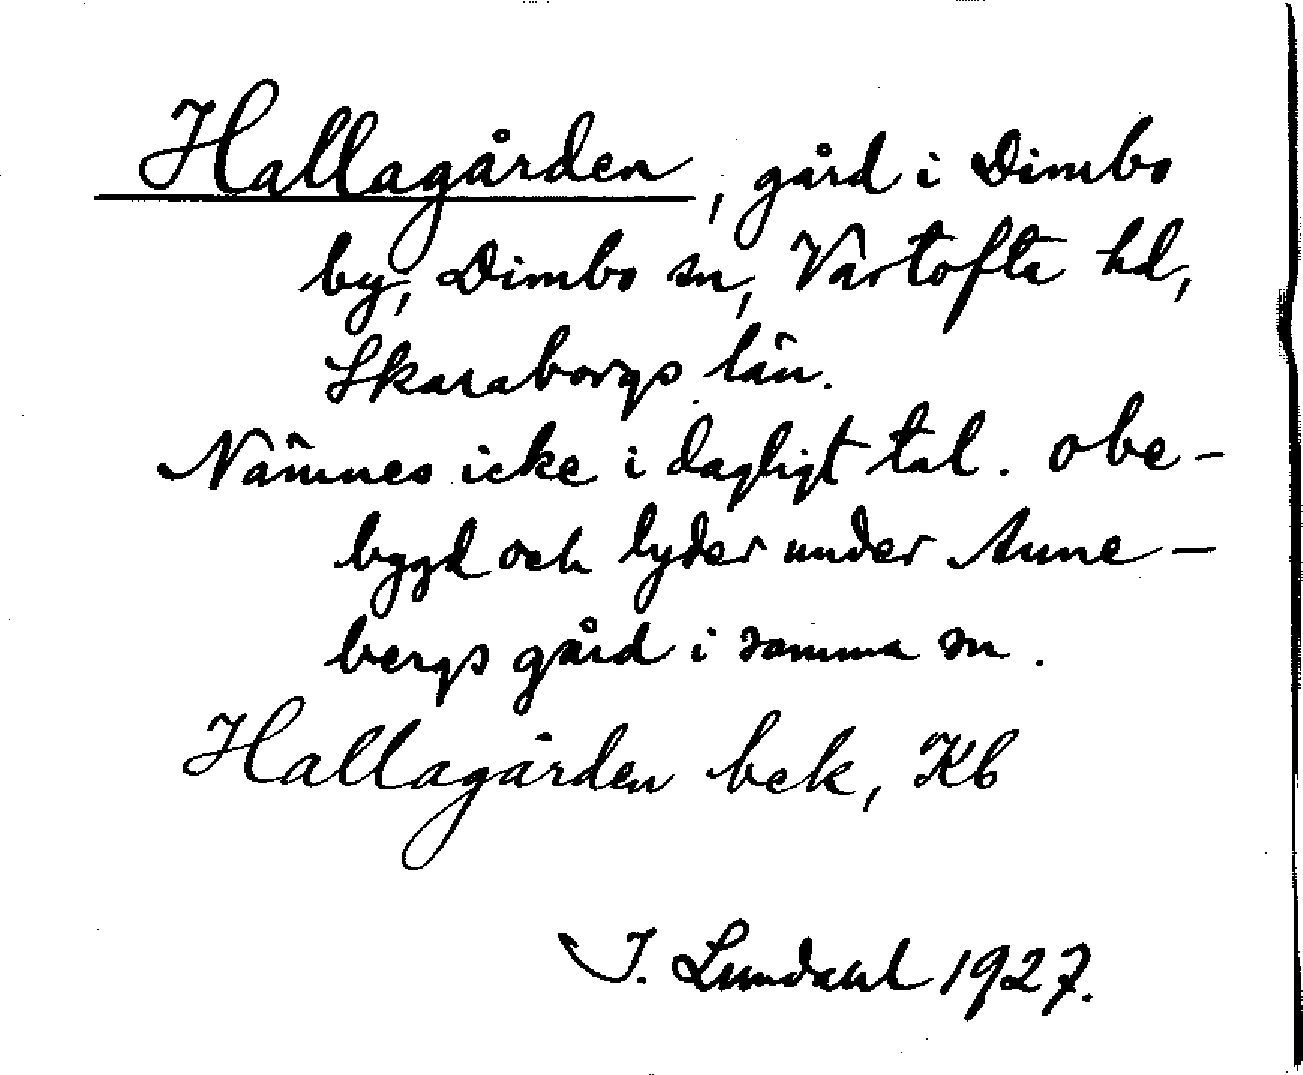 Hallagården, gård i Dimbo
by, Dimbo sn, Vartofta hd,
Skaraborgs län.
Nämnes icke i dagligt tal. obe-
byggd och lyder under Anne-
bergs gård i samma sn.
Hallagården bek, Kb
I. Lundahl 1927.